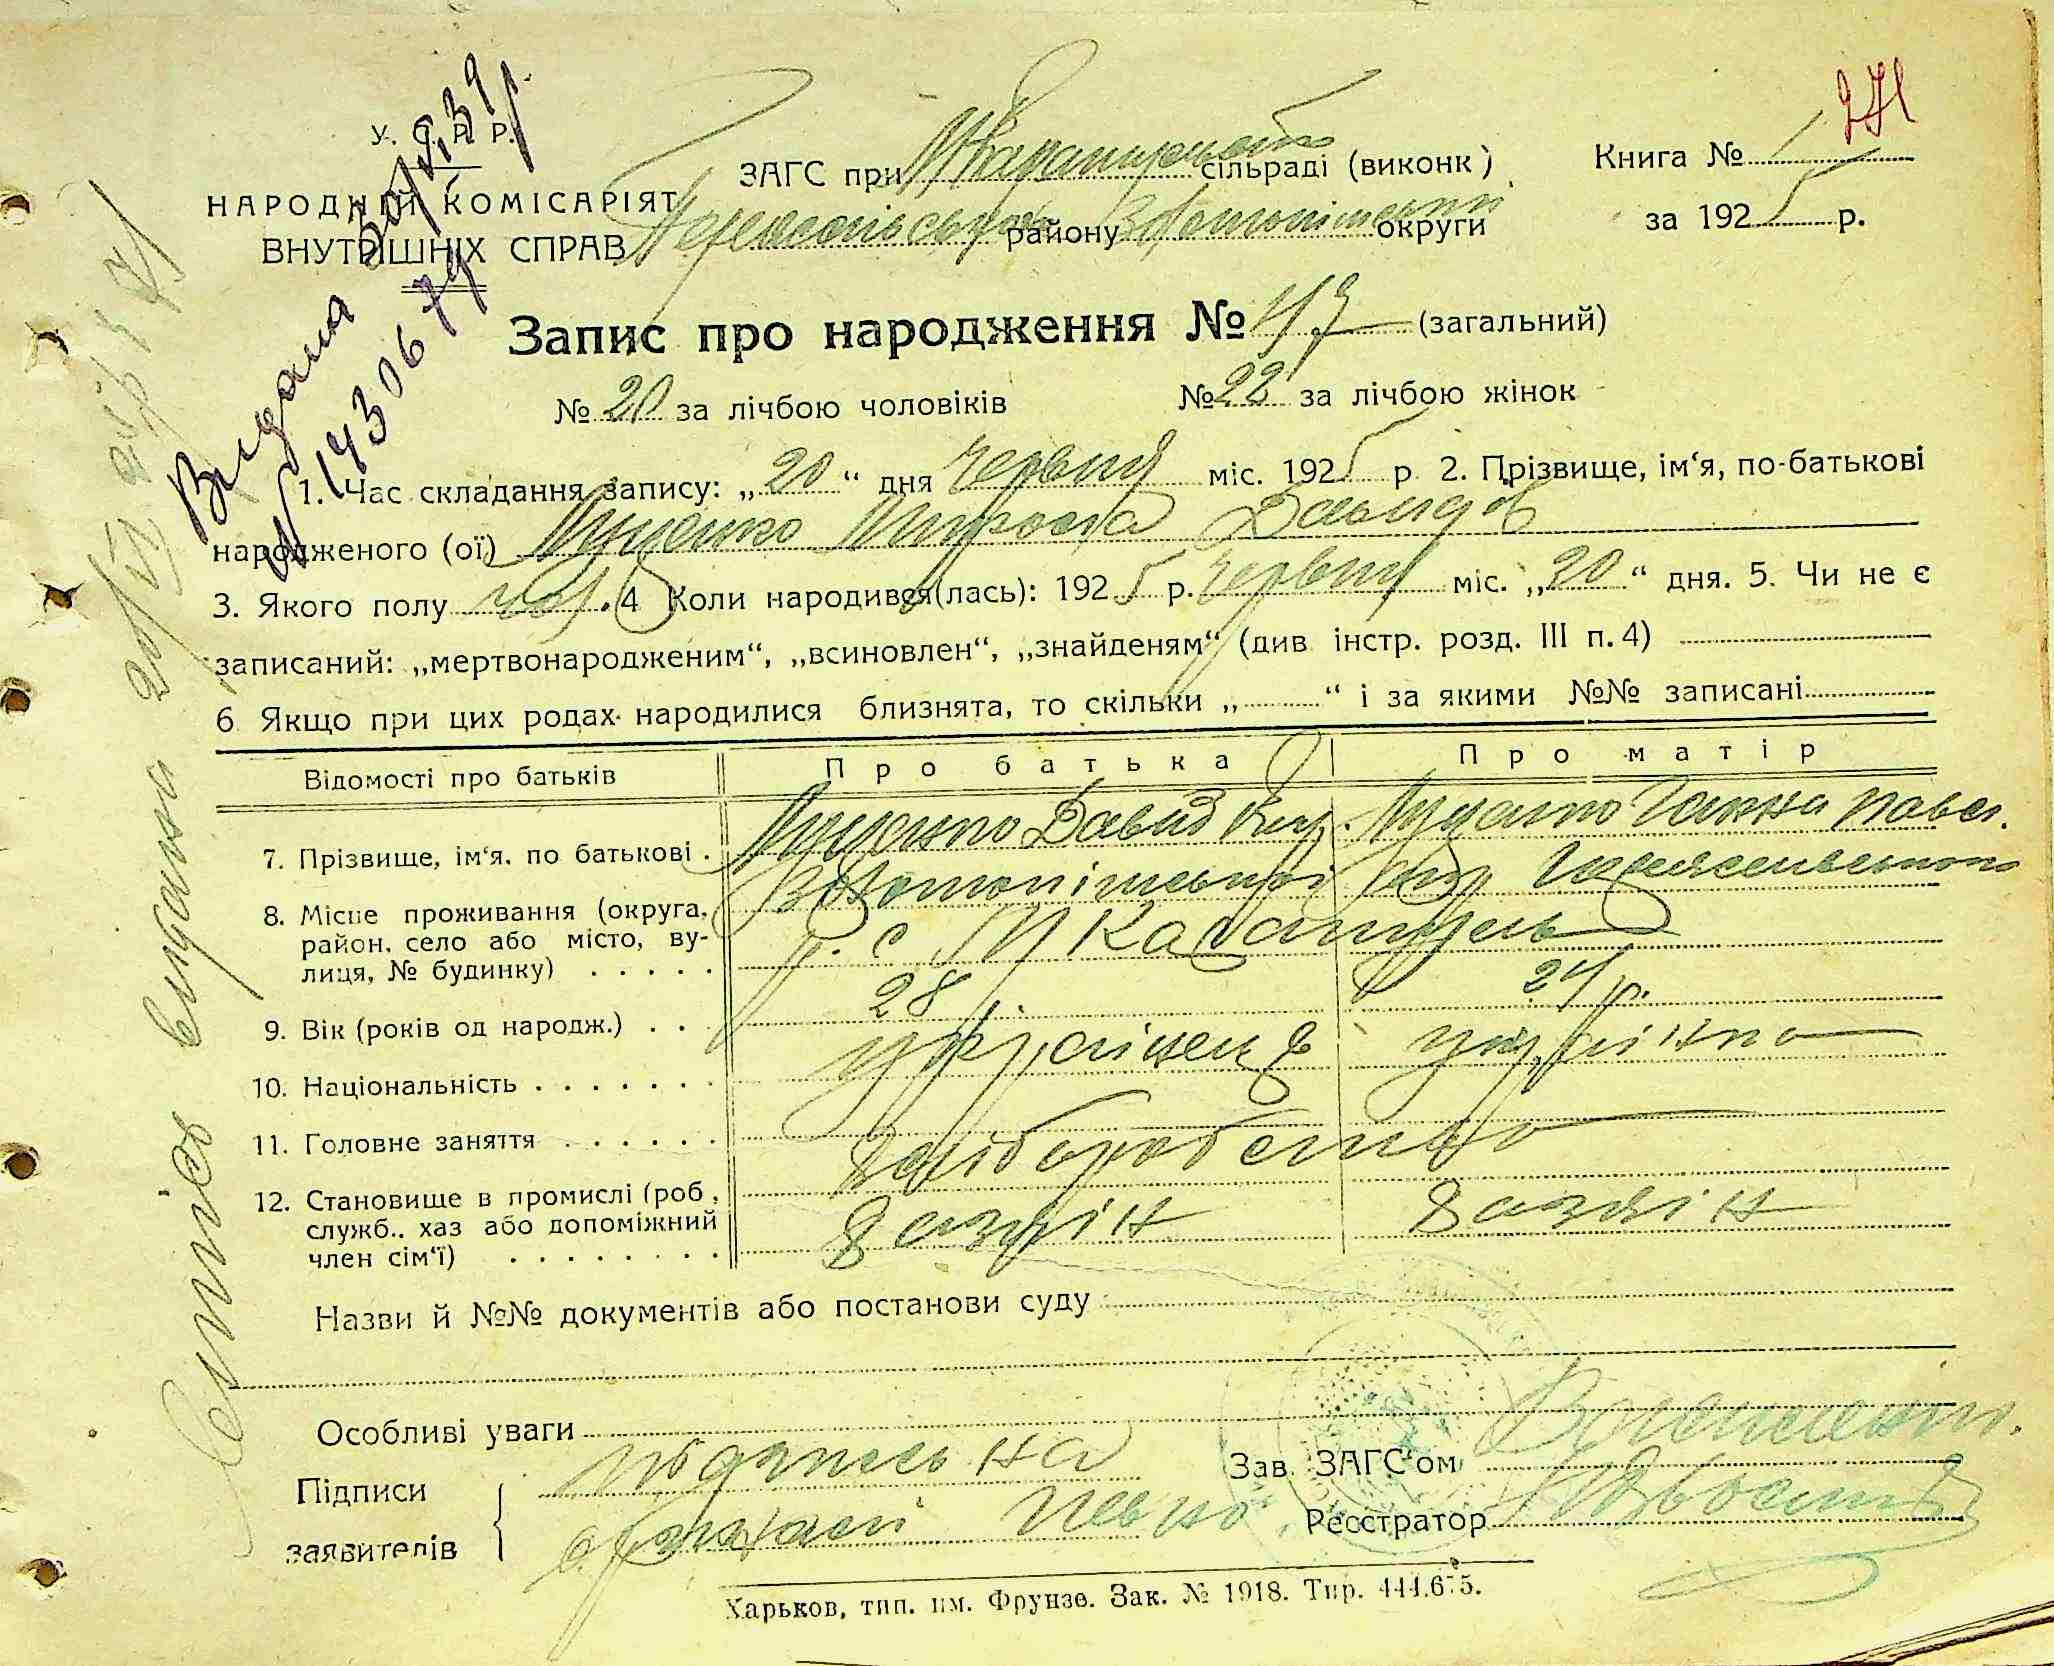 У. С. Р. Р.
НАРОДНІЙ КОМІСАРІЯТ
ВНУТРІШНІХ СПРАВ
ЗАГС при сільраді (виконк)
району округи
Книга № 1
за 1925 р.
Видана
№ 1430679
Запис про народження № 47 (загальний)
№ 20 за лічбою чоловіків № 22 за лічбою жінок
1. Час складання запису: „20“ дня червня міс. 1925 р 2. Прізвище, ім‘я, по-батькові
народженого (ої) Луценко Давидов
3. Якого полу 4 Коли народився(лась): 1925 р. червня міс. „20“ дня. 5. Чи не є
записаний: „мертвонародженим“, „всиновлен“, „знайденям“ (див інстр. розд. III п. 4)
6 Якщо при цих родах народилися близнята, то скільки „ “ і за якими №№ записані
Відомості про батьків Про батька Про матір
7. Прізвище, ім‘я. по батькові . Луценко Давид Луценко Ганна Павл.
8. Місце проживання (округа, Золотоніської
район, село або місто, ву- р. с. М Каратуль
лиця, № будинку) . . . . .
9. Вік (років од народж.) . . 28 24 р.
10. Національність . . . . . . . українець українка
11. Головне заняття . . . . . . хліборобство
12. Становище в промислі (роб,
служб.. хаз або допоміжний хазяін хазяін
член сім‘ї) . . . . . . . .
Назви й №№ документів або постанови суду
Особливі уваги
Підписи
заявителів
Зав. ЗАГС‘ом
Реєстратор
Харьков, тип. им. Фрунзе. Зак. № 1918. Тир. 444.675.